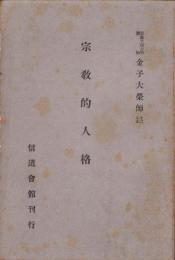 金子大榮師述
宗教的人格
信道會館刊行